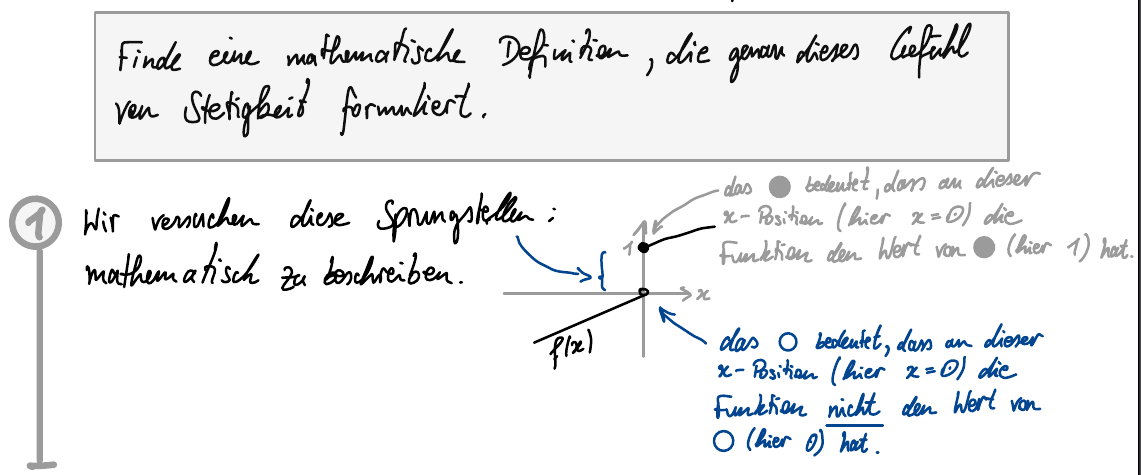 Finde eine mathematische Definition, die genau dieses Gefühl
von Stetigkeit formuliert.
1
Wir versuchen diese Sprungstellen :
mathematisch zu beschreiben.
das ● bedeutet, dass an dieser
x-Position (hier x=0) die
Funktion den Wert von ● (hier 1) hat.
1
x
f(x)
das ○ bedeutet, dass an dieser
x-Position (hier x=0) die
Funktion nicht den Wert von
○ (hier 0) hat.